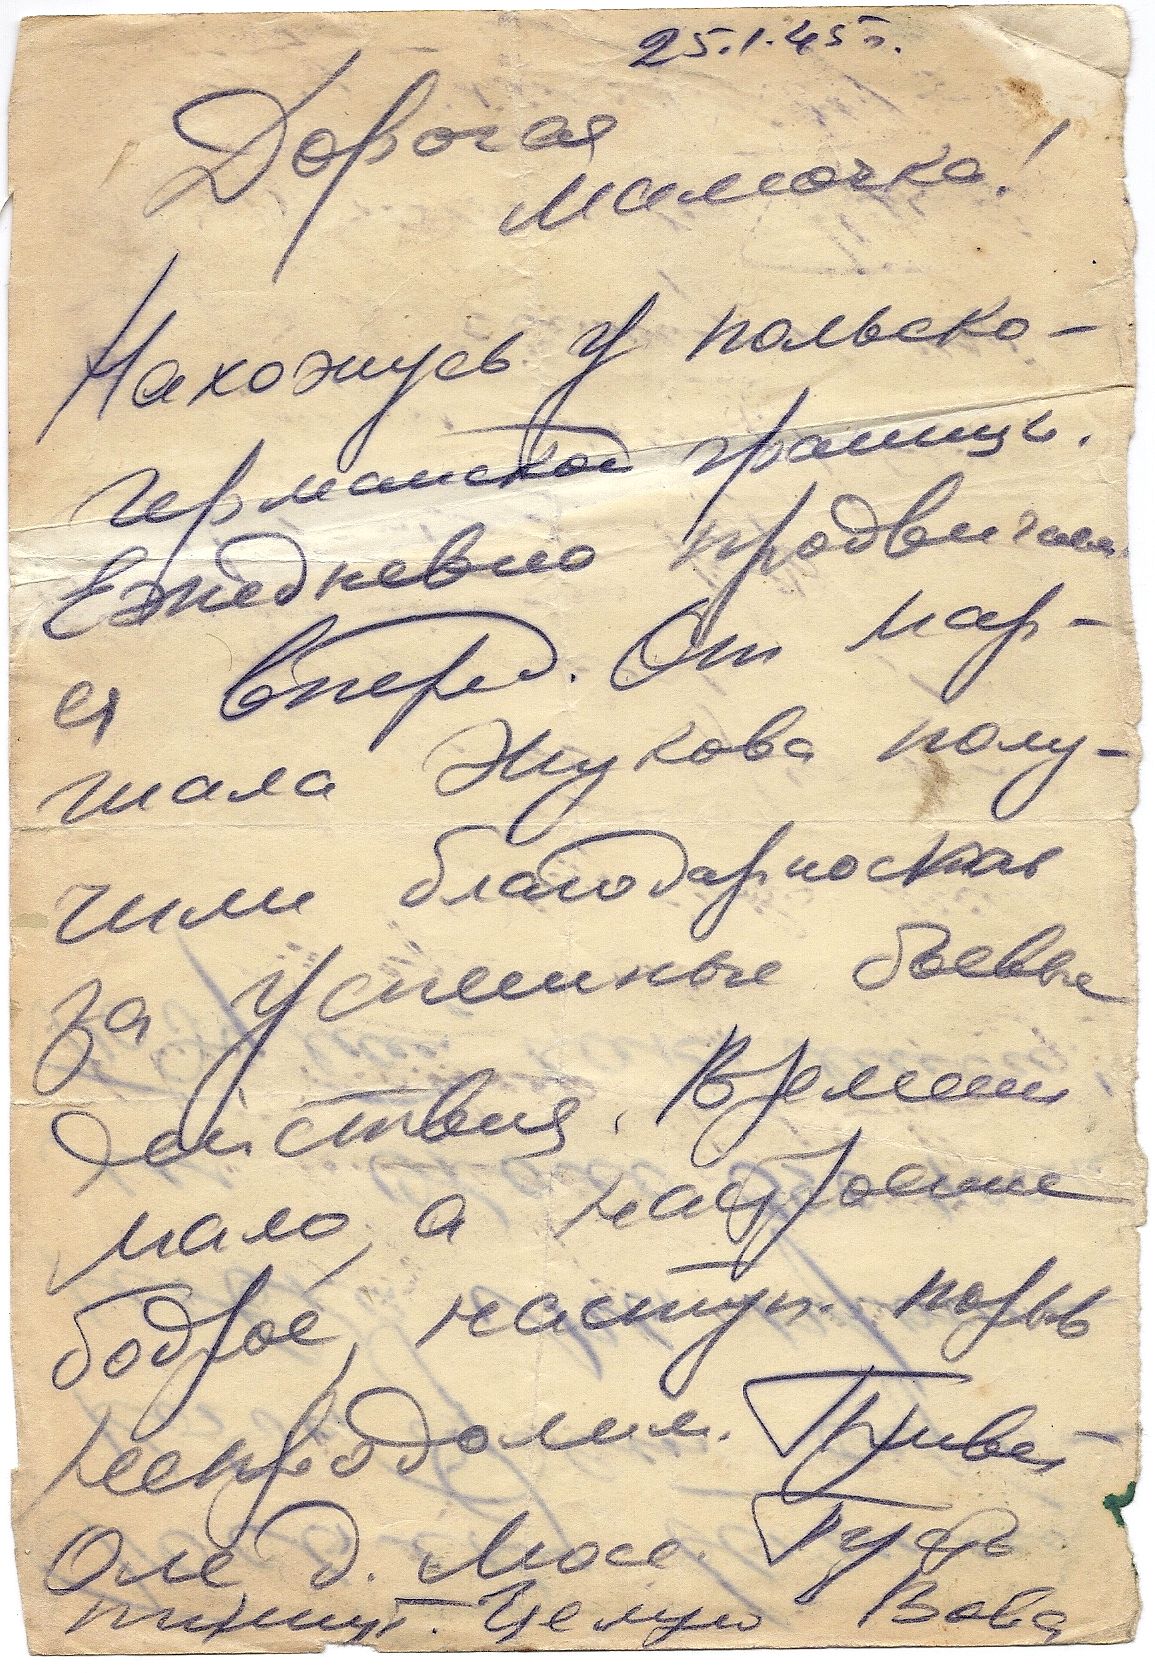 25.I.45 г.
Дорогая
мамочка!
Нахожусь у польско-
германской границы.
Ежедневно продвигаем
ся вперед. От мар-
шала Жукова полу-
чили благодарность
за успешные боевые
действия. Времени
мало, а настроение
бодрое, наступ. порыв
непреодолим. Привет
Оле, д. Мосе. Пусть
пишут. Целую Вова